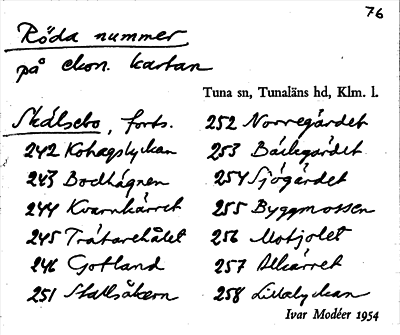 76
Röda nummer
på ekon. kartan
Tuna sn, Tunaläns hd, Klm. l.
Skálsebo, forts.
242 Kohagslyckan
243 Bodhágnen
244 Kvarnkärret
245 Trátarehålet
246 Gotland
251 Stallsåkern
252 Norregärdet
253 Backegärdet
254 Sjögärdet
255 Byggmossen
256 Motjolet
257 Alkärret
258 Lillelyckan
Ivar Modéer 1954